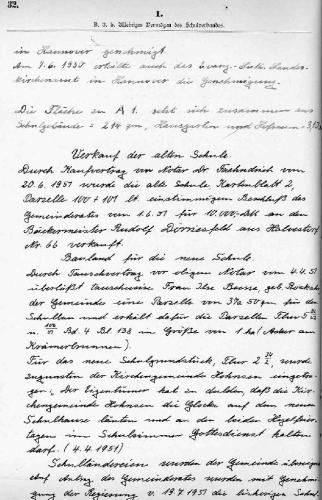 32.
I.
B. 3. b. Übriges Vermögen des Schulverbandes.
in Hannover genehmigt.
Am 7.6.1950 erhält auch das Evang.-Luth. Landes-
kirchenamt in Hannover die Genehmigung.
Die Fläche zu A 1. setzt sich zusammen aus
Schulgebäude = 214 qm, Hausgarten und Hofraum =
Verkauf der alten Schule.
Durch Kaufvertrag vor Notar Dr. vom
20.6.1951 wurde die alte Schule, Kartenblatt 2,
Parzelle 100 + 101 lt. einstimmigen Beschluß des
Gemeinderates vom 1.6.51 für 10.000,- DM an den
Bäckermeister Rudolf Dörriesfeld aus Halvestorf
Nr. 66 verkauft.
Bauland für die neue Schule.
Durch Tauschvertrag vor obigem Notar vom 4.4.51
überläßt Frau Ilse Besse, geb.
der Gemeinde eine Parzelle von 37a 50 qm für den
Schulbau und erhält dafür die Parzellen Flur 5
u. Bd. 4 Bl 138 in Größe von 1 ha (Acker am
Krämerbrunnen).
Für das neue Schulgrundstück, Flur 2, wurde
zugunsten der Kirchengemeinde Hohnsen eingetra-
gen: "Der Eigentümer hat zu dulden, daß die Kir-
chengemeinde Hohnsen die Glocke auf dem neuen
Schulhause läuten und an den beiden
tagen im Schulzimmer Gottesdienst halten
darf. (4.4.1951)
Schulländereien wurden der Gemeinde
Auf Antrag des Gemeinderates wurden mit Genehmi-
gung der Regierung v. 19.7.1951 die bisherigen